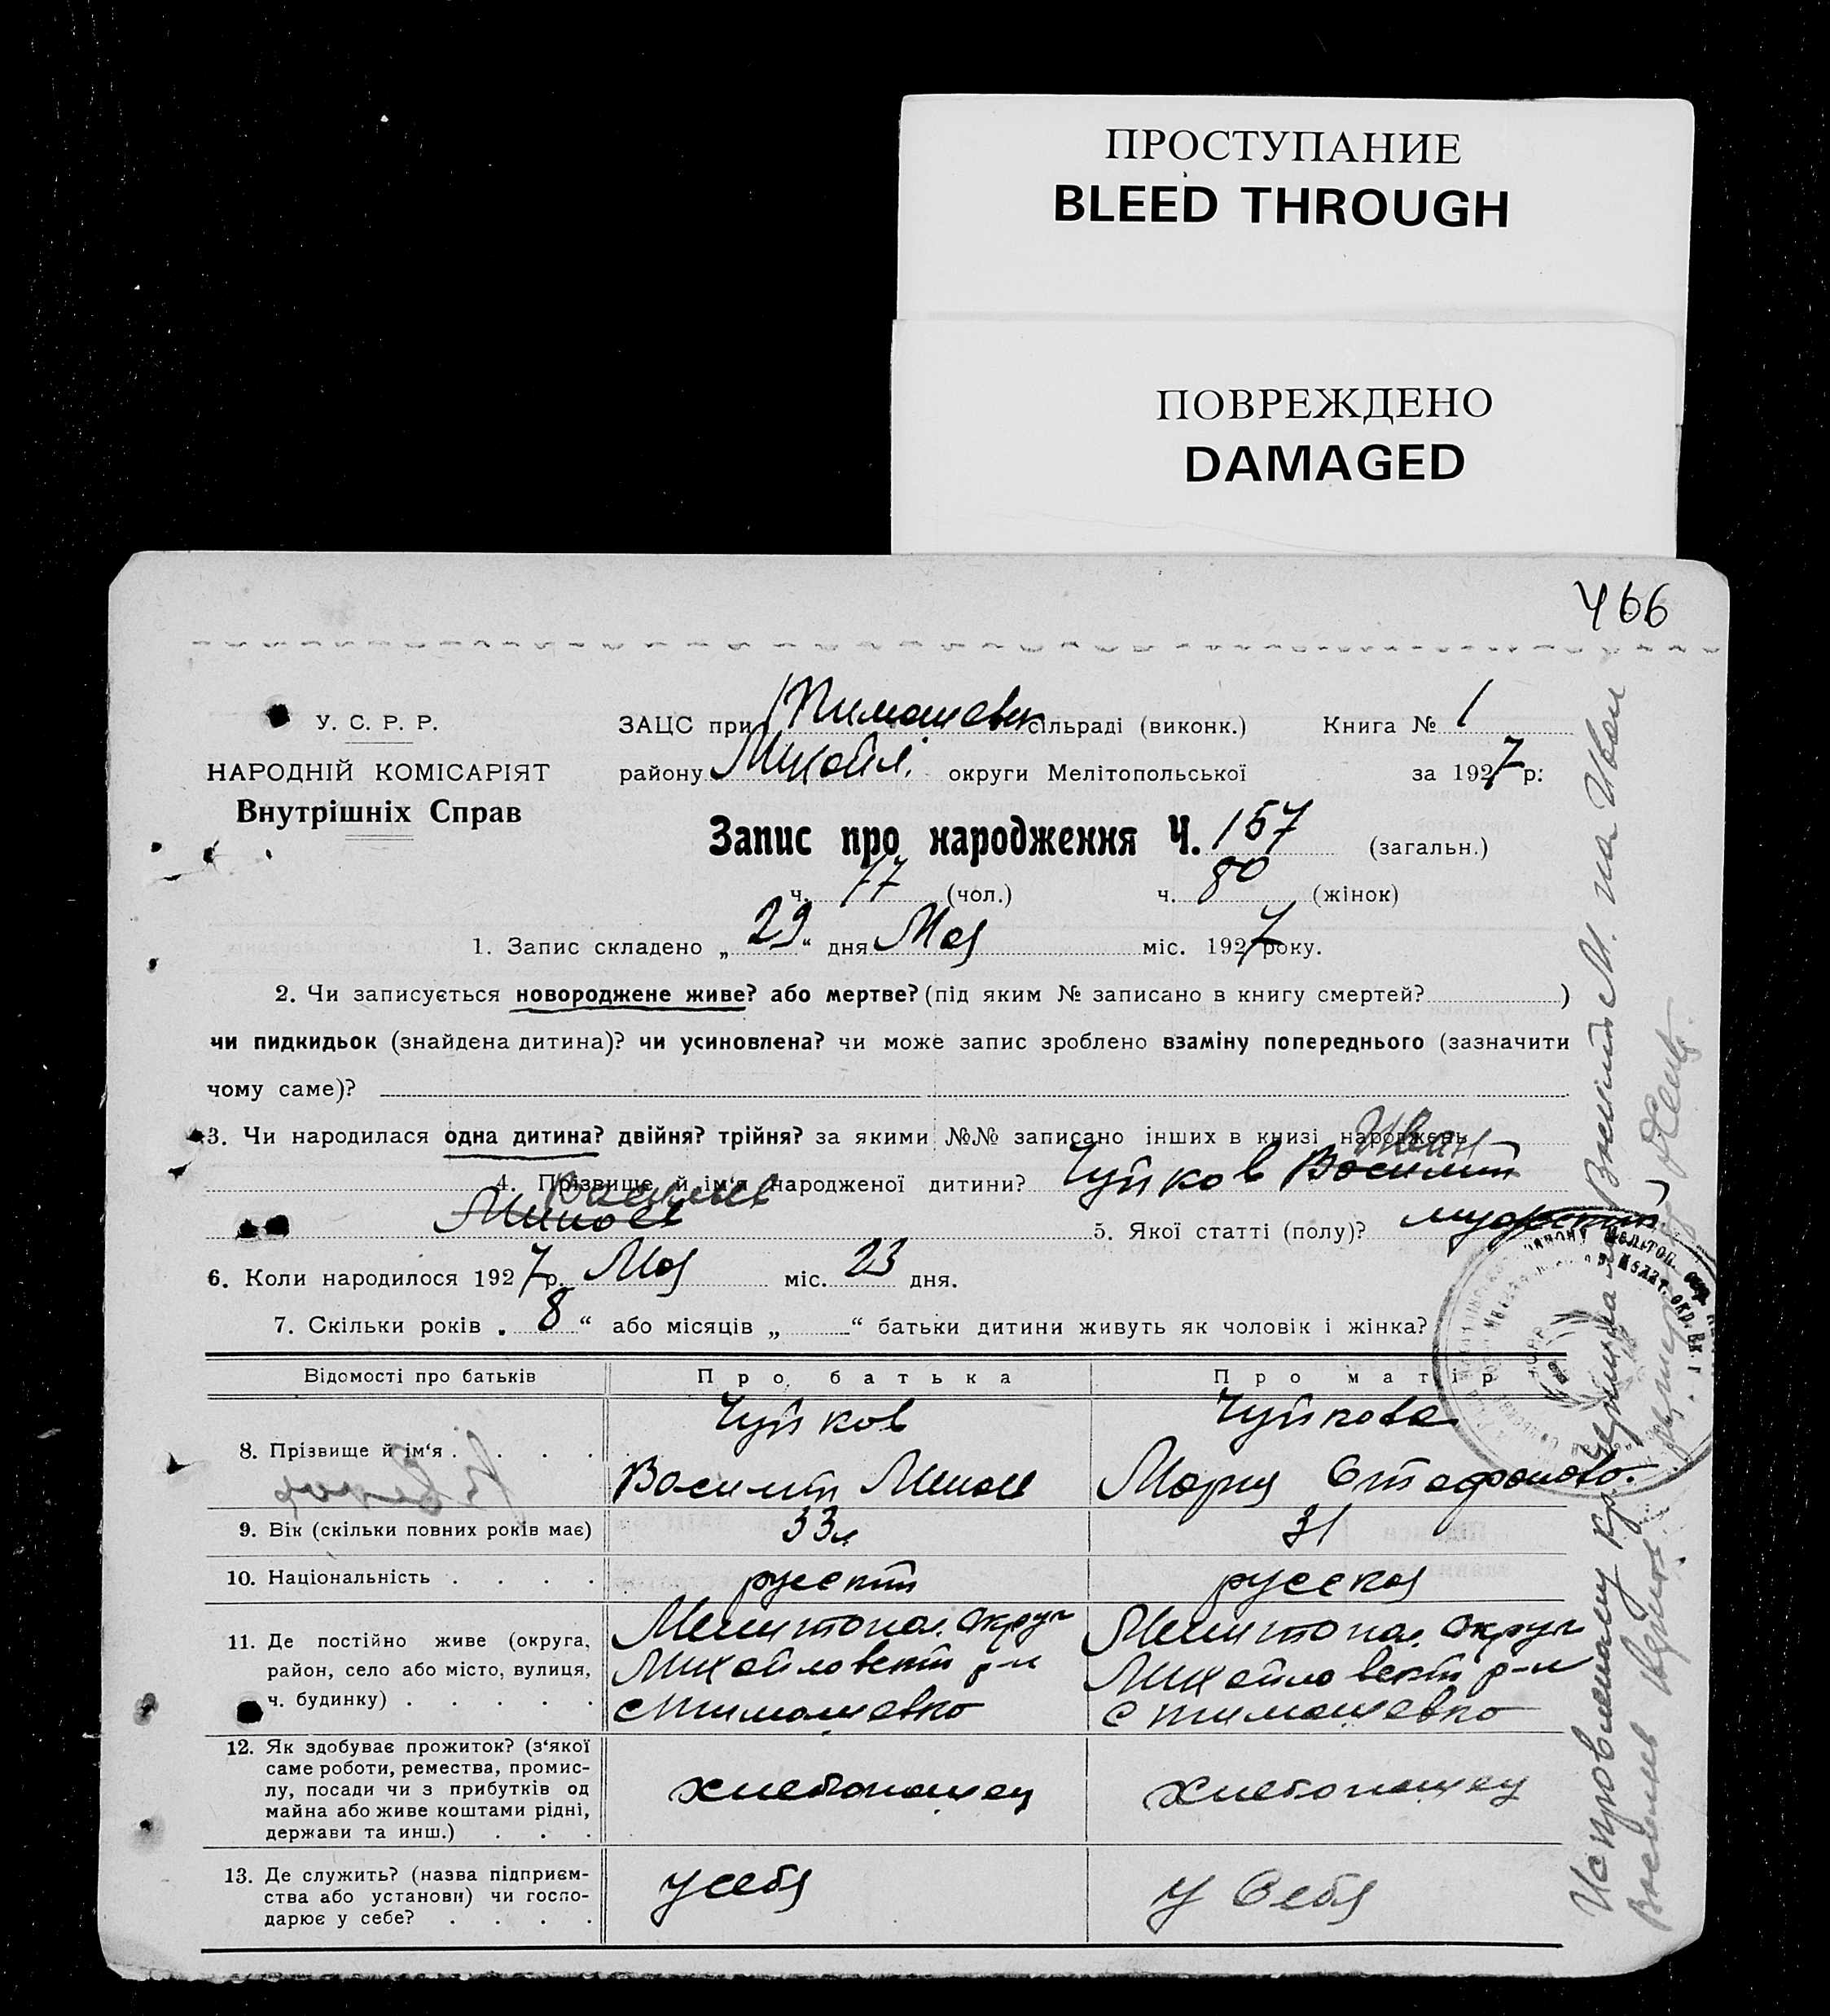 ПРОСТУПАНИЕ
BLEED THROUGH
ПОВРЕЖДЕНО
DAMAGED
466
У. С. Р. Р.
НАРОДНІЙ КОМІСАРІЯТ
Внутрішніх Справ
ЗАЦС при Тимошевк сільраді (виконк.) Книга № 1
району Михайл. округи Мелітопольської за 1927 р:
Запис про народження Ч. 157 (загальн.)
ч. 77 (чол.) ч. 80 (жінок)
1. Запис складено „ 29 “ дня Мая міс. 1927 року.
2. Чи записується новороджене живе? або мертве? (під яким № записано в книгу смертей? )
чи пидкидьок (знайдена дитина)? чи усиновлена? чи може запис зроблено взаміну попереднього (зазначити
чому саме)?
3. Чи народилася одна дитина? двійня? трійня? за якими №№ записано інших в книзі народжень
Иван
4. Прізвище й ім‘я народженої дитини? Чуйков Василий
Васильев
Минаев 5. Якої статті (полу)? мужеский
6. Коли народилося 1927 р. Мая міс. 23 дня.
7. Скільки років „ 8 “ або місяців „ “ батьки дитини живуть як чоловік і жінка?
Відомості про батьків Про батька Про матір
8. Прізвище й ім‘я . . . . Чуйков Чуйкова
Василий Минаев Мария Стафоново
9. Вік (скільки повних років має) 33л 31
10. Національність . . . . русский русская
11. Де постійно живе (округа, район, село або місто, вулиця, ч. будинку) . . . . . Мелитопол. округ Мелитопол. округ
Михайловский р-н Михайловский р-н
с Тимошевко с Тимошевко
12. Як здобуває прожиток? (з‘якої
саме роботи, ремества, промис-
лу, посади чи з прибутків од
майна або живе коштами рідні,
держави та инш.) . . . хлебопашец хлебопашец
13. Де служить? (назва підприєм-
ства або установи) чи госпо-
дарює у себе? . . . . у себя у Себя
Исправленому кр. Василий М. на Иван
Васильев